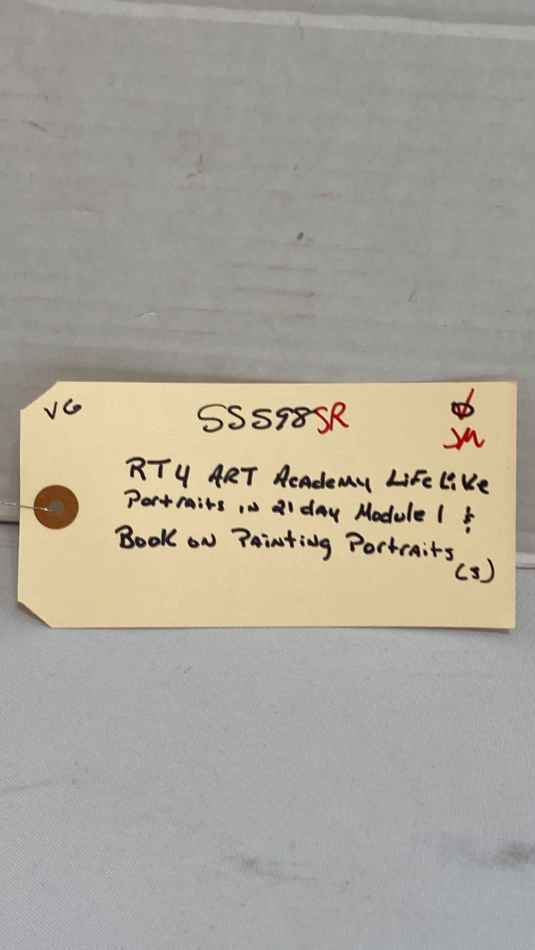 VG
55598SR
JM
RT4 ART Academy LifeLike
Portraits in 21 day Module 1 &
Book on Painting Portraits
(S)